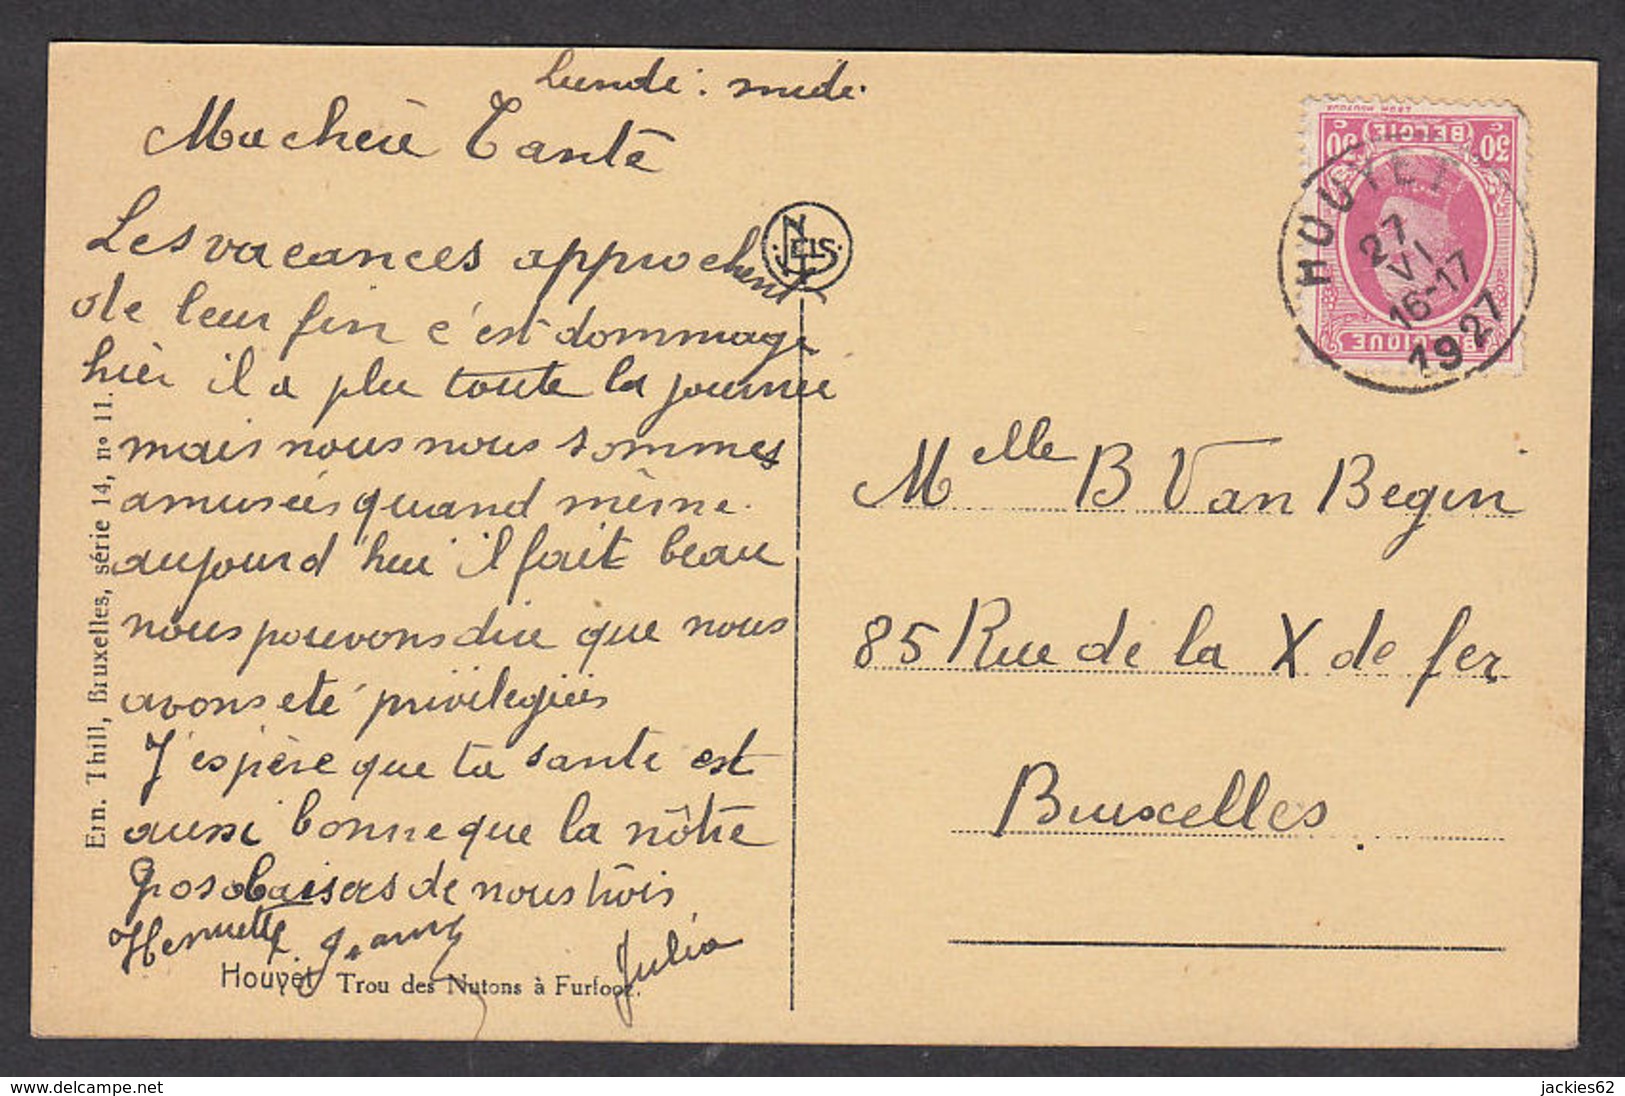 Lundi : midi.
Ma chère Tante
Les vacances approchent
de leur fin c'est dommage
hier il a plu toute la journee
mais nous nous sommes
amusées quand même.
aujourd'hui il fait beau
nous pouvons dire que nous
avons eté privilegiées
J'espère que ta sante est
aussi bonne que la nôtre
Gros baisers de nous trois
Henriette Jeanny Julia
Houyet Trou des Nutons à Furfooz.
Ern. Thill, Bruxelles, série 14, n° 11.
NELS
LEON HOUYOUX
30 c BELGIË 30 c
BELGIQUE
HOUYET
27
VI
16-17
1927
Melle B Van Begin
85 Rue de la X de fer
Bruxelles.
www.delcampe.net
jackies62